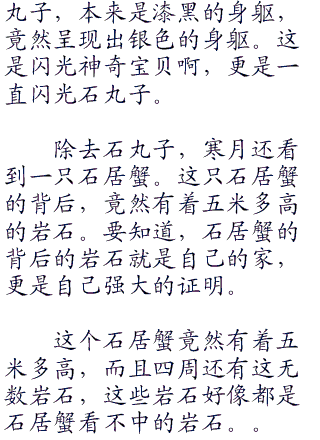 丸子，本来是漆黑的身躯，
竟然呈现出银色的身躯。这
是闪光神奇宝贝啊，更是一
直闪光石丸子。
除去石丸子，寒月还看
到一只石居蟹。这只石居蟹
的背后，竟然有着五米多高
的岩石。要知道，石居蟹的
背后的岩石就是自己的家，
更是自己强大的证明。
这个石居蟹竟然有着五
米多高，而且四周还有这无
数岩石，这些岩石好像都是
石居蟹看不中的岩石。。